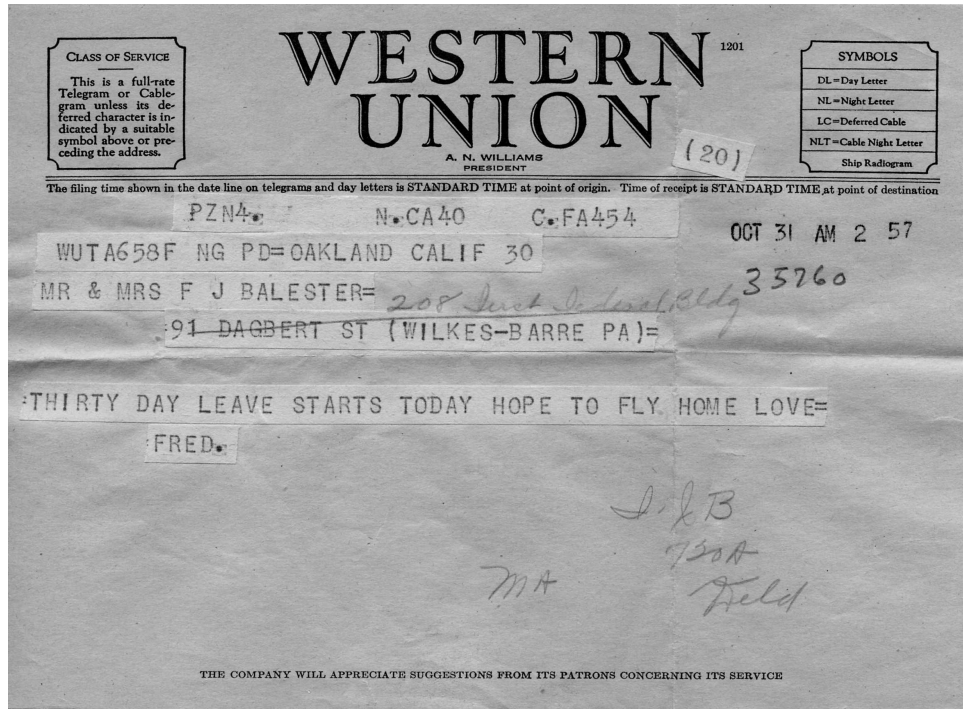 CLASS OF SERVICE
This is a full-rate
Telegram or Cable-
gram unless its de-
ferred character is in-
dicated by a suitable
symbol above or pre-
ceding the address.
WESTERN
UNION
1201
A. N. WILLIAMS
PRESIDENT
(20)
SYMBOLS
DL=Day Letter
NL=Night Letter
LC=Deferred Cable
NLT=Cable Night Letter
Ship Radiogram
The filing time shown in the date line on telegrams and day letters is STANDARD TIME at point of origin. Time of receipt is STANDARD TIME at point of destination
PZN4. N.CA40 C.FA454
OCT 31 AM 2 57
WUTA658F NG PD=OAKLAND CALIF 30
35760
MR & MRS F J BALESTER=
208 First Federal Bldg
:91 DAGBERT ST (WILKES-BARRE PA)=
:THIRTY DAY LEAVE STARTS TODAY HOPE TO FLY HOME LOVE=
:FRED.
B
720A
MA
THE COMPANY WILL APPRECIATE SUGGESTIONS FROM ITS PATRONS CONCERNING ITS SERVICE